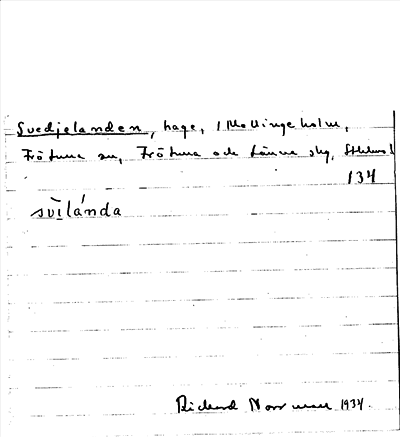 Svedjelanden, hage, i Mellingeholm,
Frötuna sn, Frötuna och Länna skg, Sthlms l
134
svìlánda
Rickard Norrman 1934.